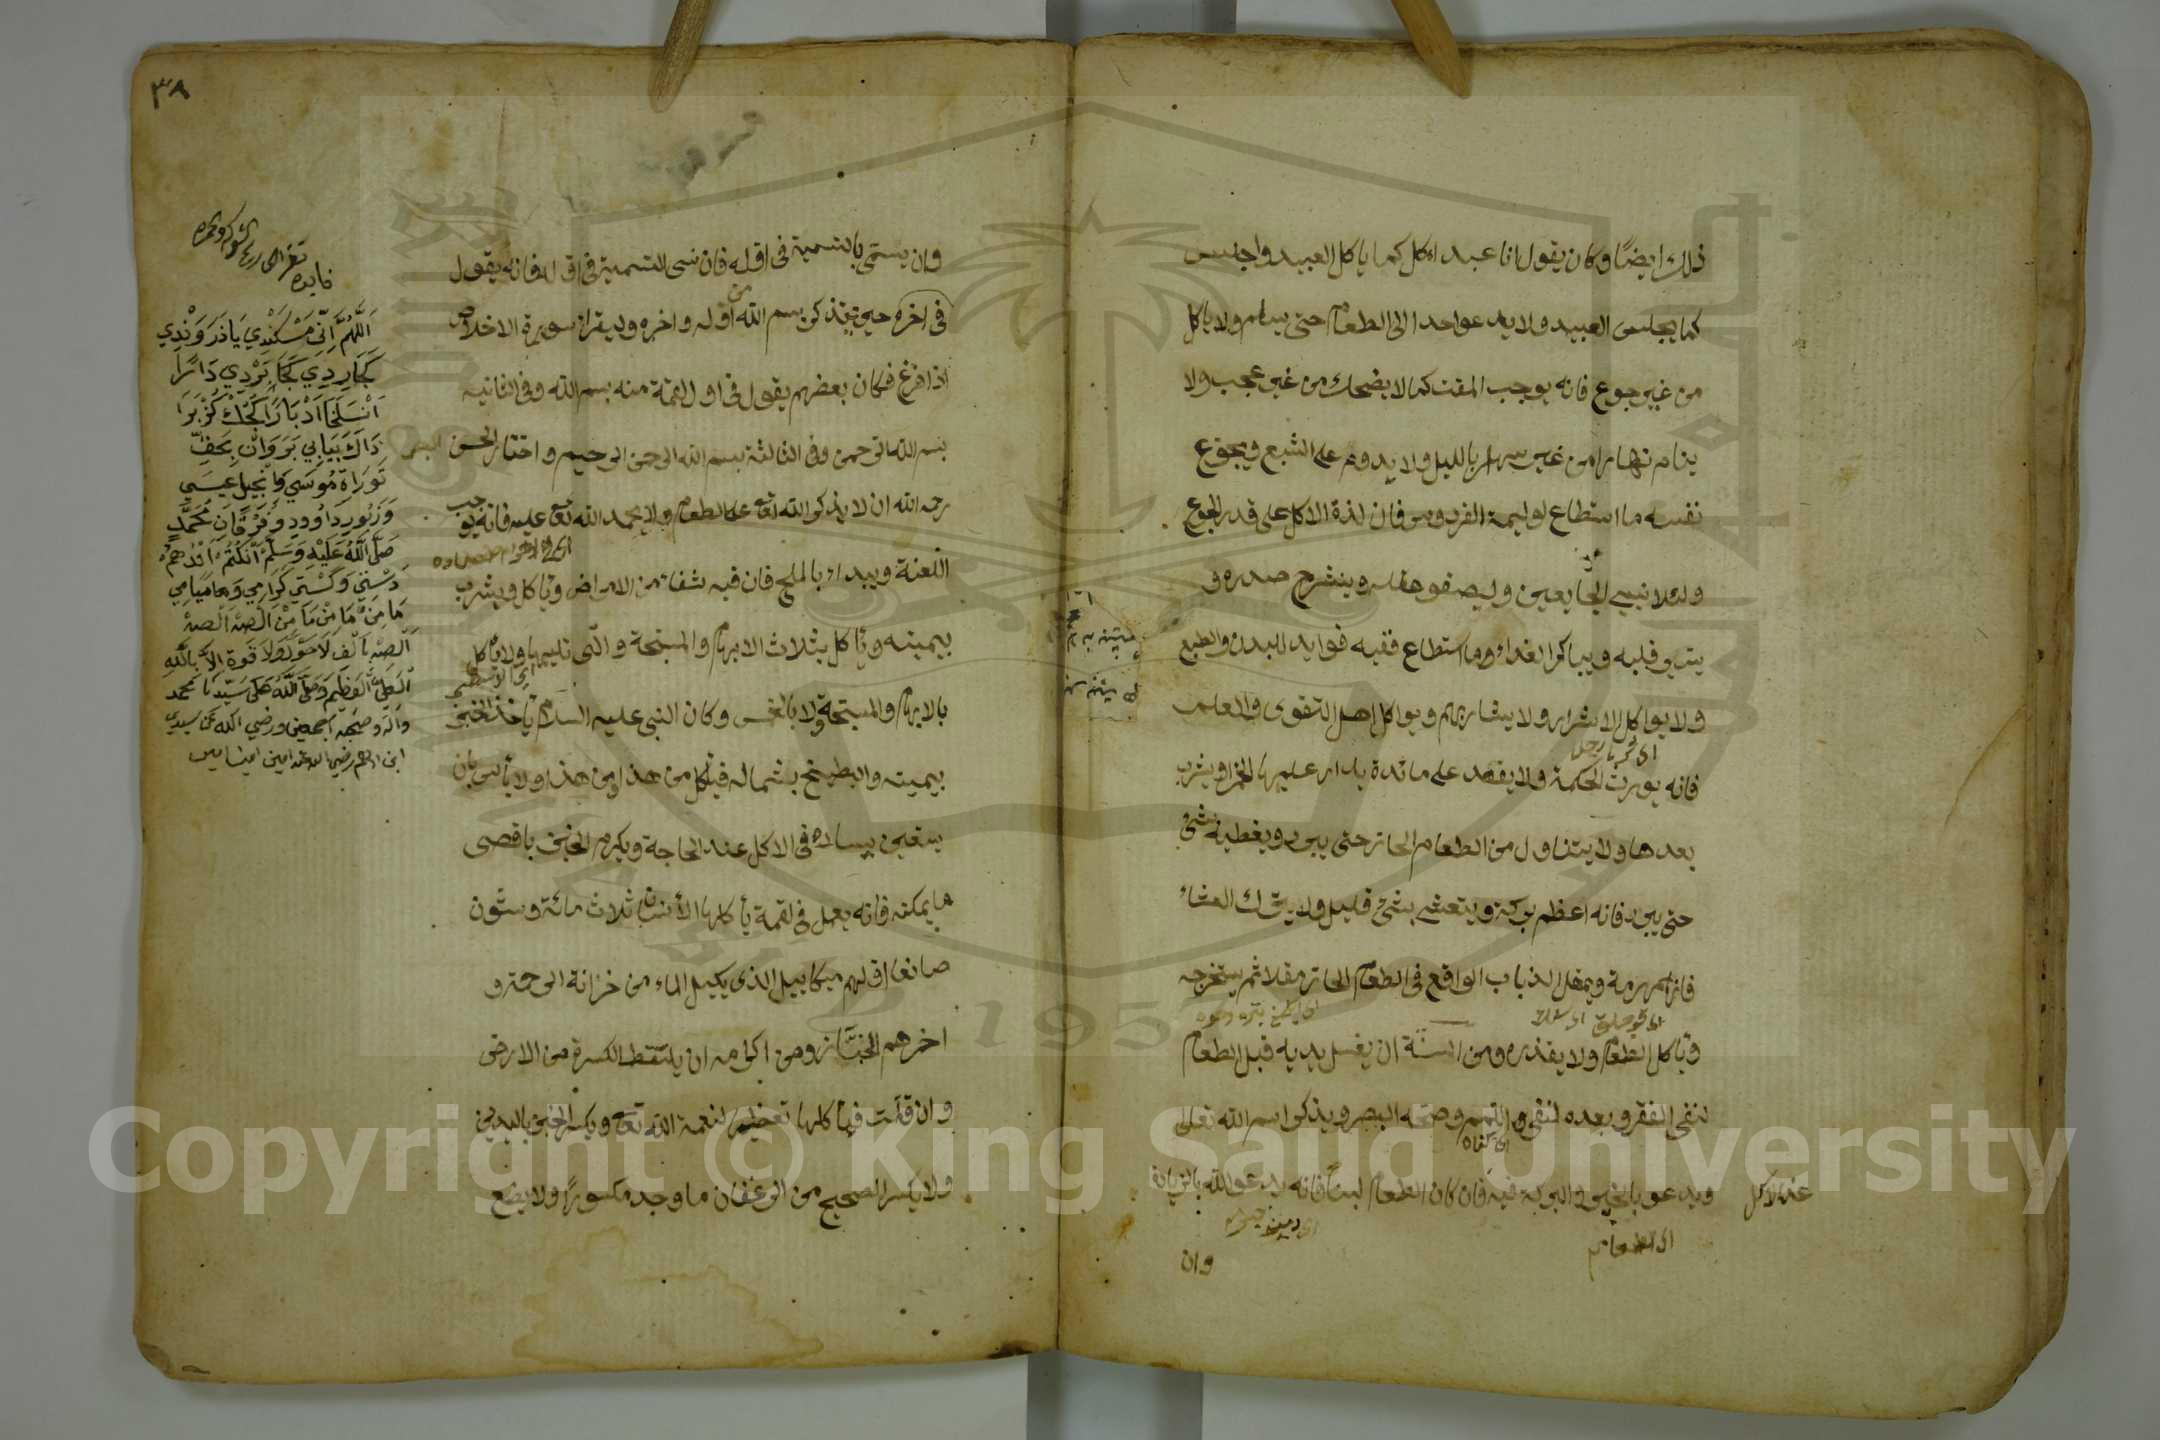 ذلك ايضًا وكان يقول انا عبد اكل كما ياكل العبيد واجلس
كما يجلس العبيد ولا يدعوا احدا الى الطعام حتى يسلم ولا ياكل
من غير جوع فانه يوجب المقت كما لا يضحك من غير عجب ولا
ينام نهارا من غير سهر بالليل ولا يدوم على الشبع ويجوع
نفسه ما استطاع لوليمة الفردوس فان لذة الاكل على قدر الجوع
ولئلا نسي الجايعين وليصفو عقله وينشرح صدره و
قلبه ويباكر الغداء وما استطاع ففيه فوايد للبدن والطبع
ولا يواكل الاشرار ولا يشاربهم ويواكل اهل التقوى والعلم
فانه يورث الحكمة ولا يقعد على مائدة يدار عليها الخمر او يشرب
بعدها ولا يتناول من الطعام الحار حتى يبرد ويغطيه شئ
حتى يبرد فانه اعظم بركة ويتعشى بشئ قليل ولا يترك العشاء
فانه مهرمة ويمقل الذباب الواقع في الطعام الحار مقلا ثم يستخرجه
وياكل الطعام ولا يقذره ومن السنة ان يغسل يديه قبل الطعام
لنفى الفقر وبعده لنفى اللمم وصحه البصر ويذكر اسم الله تعالى
عند الاكل
ويدعو بالخير والبركة فيه فان كان الطعام لبنًا فانه يدعو الله بالزيادة
وان
٣٨
وان يسمى بالتسمية فى اوله فان نسى التسمية فى اوله فانه يقول
فى اخره حين يتذكر بسم الله من اوله واخره وليقرا سورة الاخلاص
اذا فرغ فكان بعضهم يقول فى اول لقمة منه بسم الله وفى الثانيه
بسم الله الرحمن وفى الثالثة بسم الله الرحمن الرحيم واختار الحسن البصرى
رحمه الله ان لا يذكر الله تعا على الطعام ولا يحمد الله تعا عليه فانه يوجب
اللعنة ويبداء بالملح فان فيه شفاء من الامراض وياكل ويشرب
بيمينه وياكل بثلاث الابهام والمسبحة والتى تليهما ولا ياكل
بالابهام والمسبحة ولا بالخمس وكان النبى عليه السلام ياخذ الخبز
بيمينه والبطيخ بشماله فياكل من هذا ومن هذا ولا بأس بان
يستعين بيساره فى الاكل عند الحاجة ويكرم الخبز باقصى
ما يمكنه فانه يعمل فى لقمة يأكلها الأنسان ثلاث مائة وستون
صانعا اولهم ميكاييل الذى يكيل الماء من خزانة الرحمة و
اخرهم الخباز ومن اكرامه ان يلتقط الكسرة من الارض
وان قلت فياكلها تعظيما لنعمة الله تعا ويكسر الخبز باليدين
ولا يكسر الصحيح من الرغفان ما وجد مكسورًا ولا يضع
فايده
اَللّٰهُمَّ اِنِّي
تَوْرَاةِ مُوسَي وَاَنْجِيل عِيسَي
وَزَبُورِ دَاوُودِ وَفُرْقَانِ مُحَمَّدٍ
صَلَّى اللّٰهُ عَلَيْهِ وَسَلَّمْ
لَا حَوْلَ وَلَا قُوَةِ اِلَّا بِاللّٰهِ
اَلْعَلِيِّ الْعَظِيمِ وَصَلَّى اللّٰهُ عَلَى سَيِّدِنَا مُحَمد
واله وصحبه اجمعين ورضي الله عن سيدي
ابن ادهم رضي الله عنه امين امين امين
Copyright © King Saud University
1957